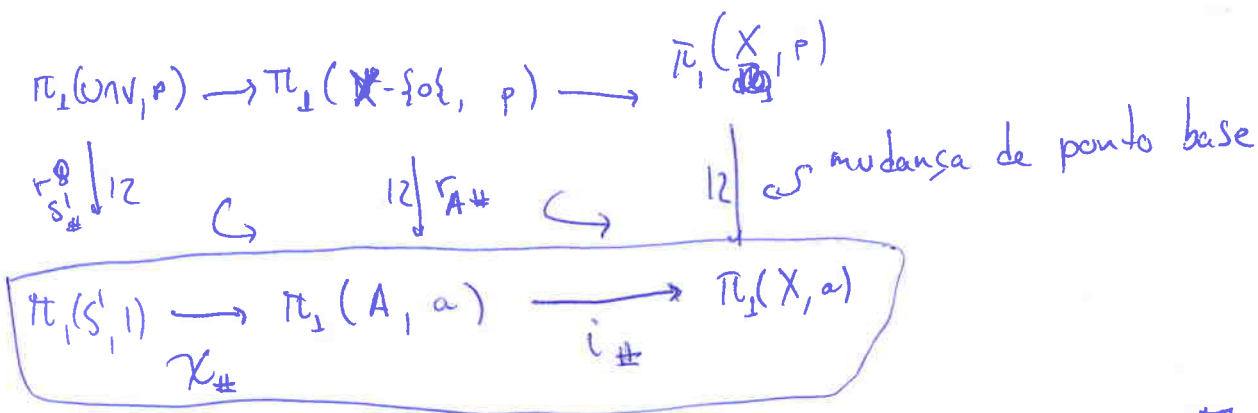 π₁(U∩V, p) → π₁(X-{o}, p) → π₁(X, p)
r S¹ # ↓ ≀≀ ≀≀ ↓ r A # ≀≀ ↓ mudança de ponto base
π₁(S¹, 1) → π₁(A, a) → π₁(X, a)
χ# i#